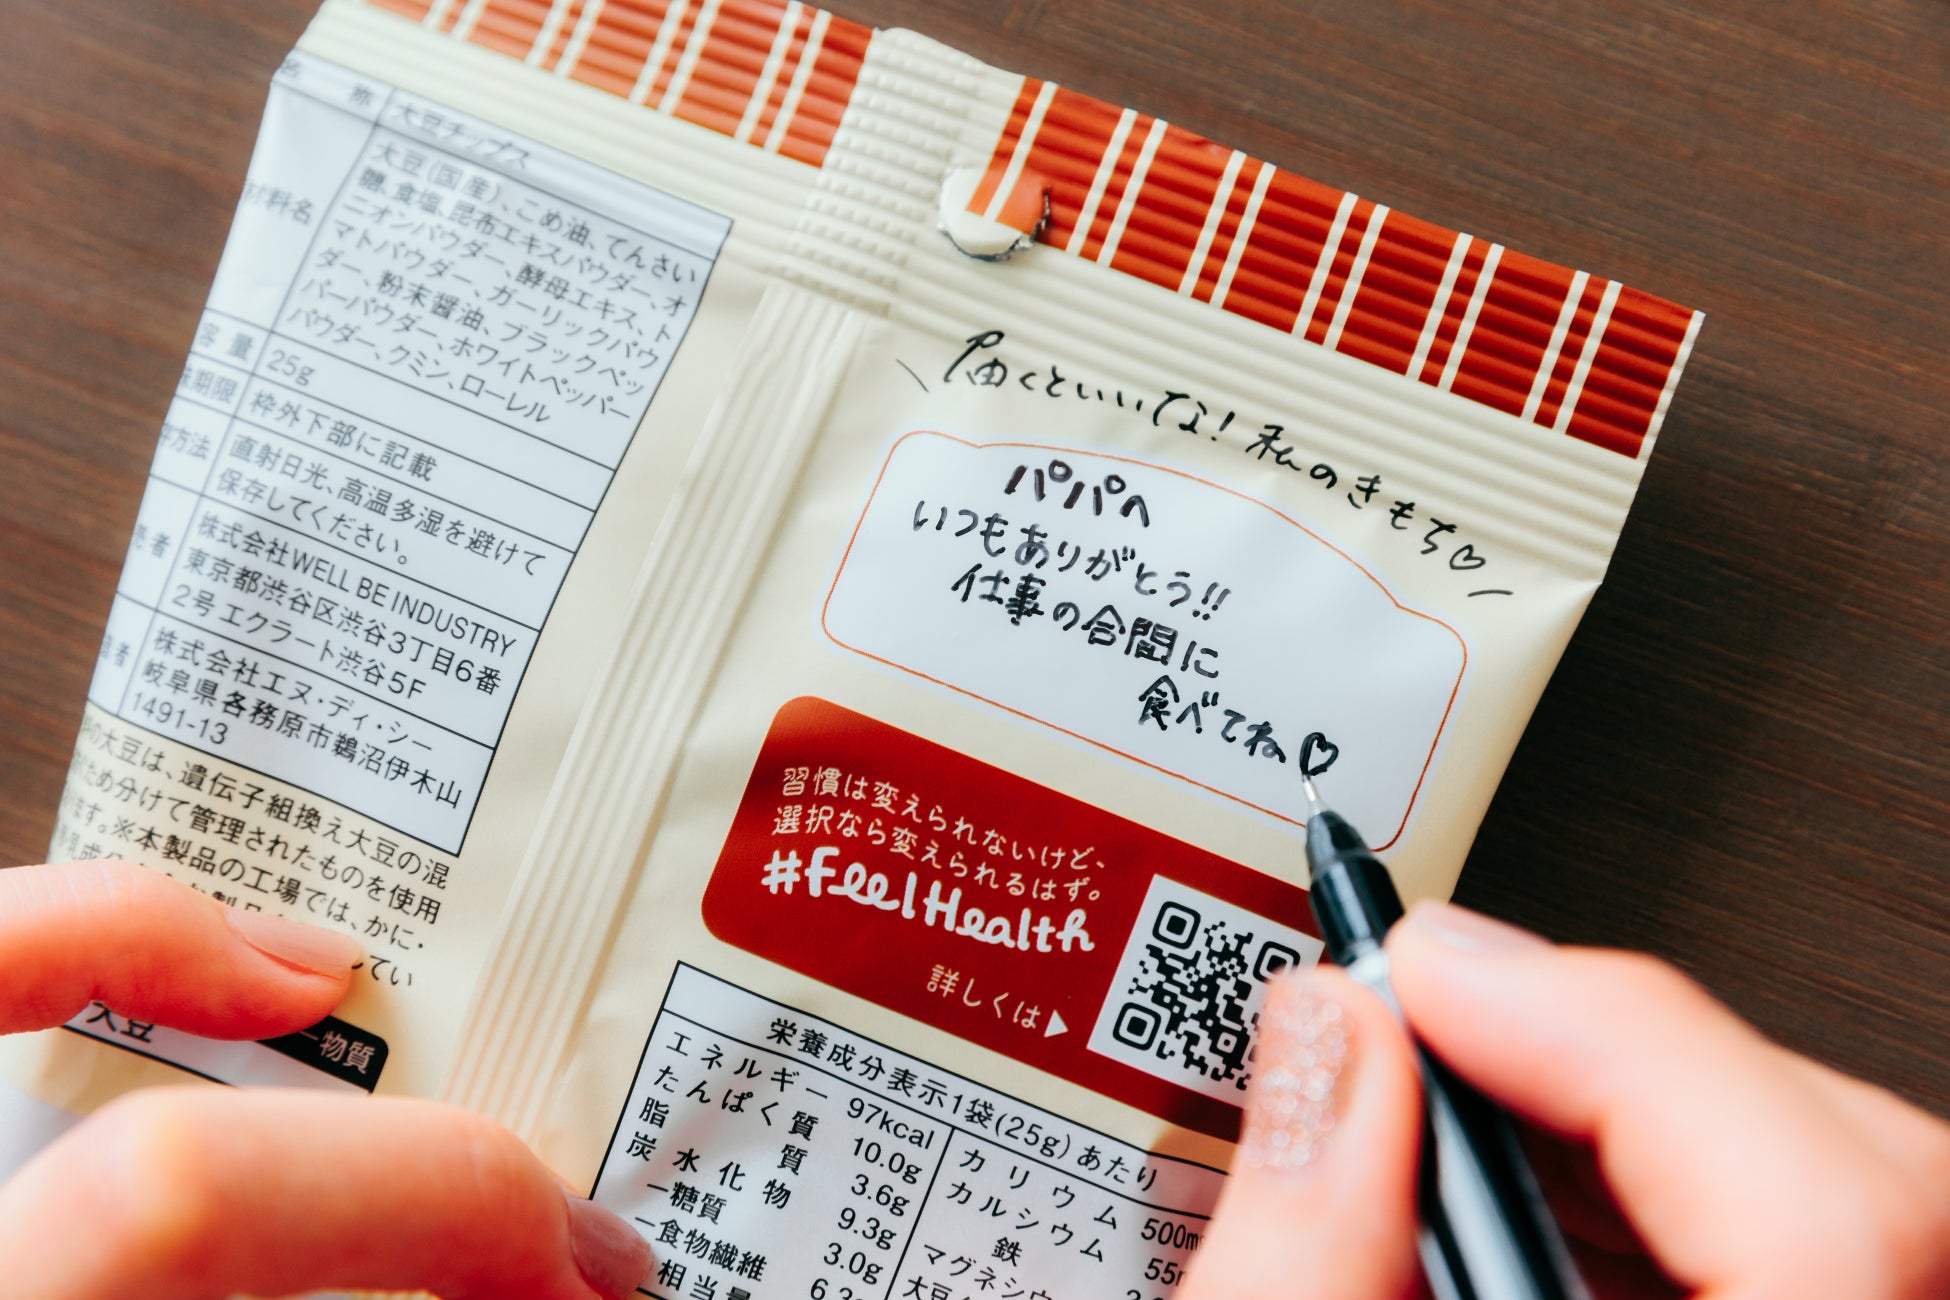 名 称 大豆チップス
材料名 大豆(国産)、こめ油、てんさい
糖、食塩、昆布エキスパウダー、オ
ニオンパウダー、酵母エキス、ト
マトパウダー、ガーリックパウ
ダー、粉末醤油、ブラックペッ
パーパウダー、ホワイトペッパー
パウダー、クミン、ローレル
容量 25g
味期限 枠外下部に記載
存方法 直射日光、高温多湿を避けて
保存してください。
売者 株式会社WELL BE INDUSTRY
東京都渋谷区渋谷3丁目6番
2号 エクラート渋谷5F
造者 株式会社エヌ・ディ・シー
岐阜県各務原市鵜沼伊木山
1491-13
の大豆は、遺伝子組換え大豆の混
ため分けて管理されたものを使用
ます。※本製品の工場では、かに・
乳成
製品
してい
大豆
物質
届くといいな! 私のきもち♡
パパへ
いつもありがとう!!
仕事の合間に
食べてね♡
習慣は変えられないけど、
選択なら変えられるはず。
#FeelHealth
詳しくは▶
栄養成分表示1袋(25g)あたり
エネルギー 97kcal
たんぱく質 10.0g
脂質 3.6g
炭水化物 9.3g
ー糖質 3.0g
ー食物繊維 6.3
相当量
カリウム 500m
カルシウム 55m
鉄
マグネシウ
大豆